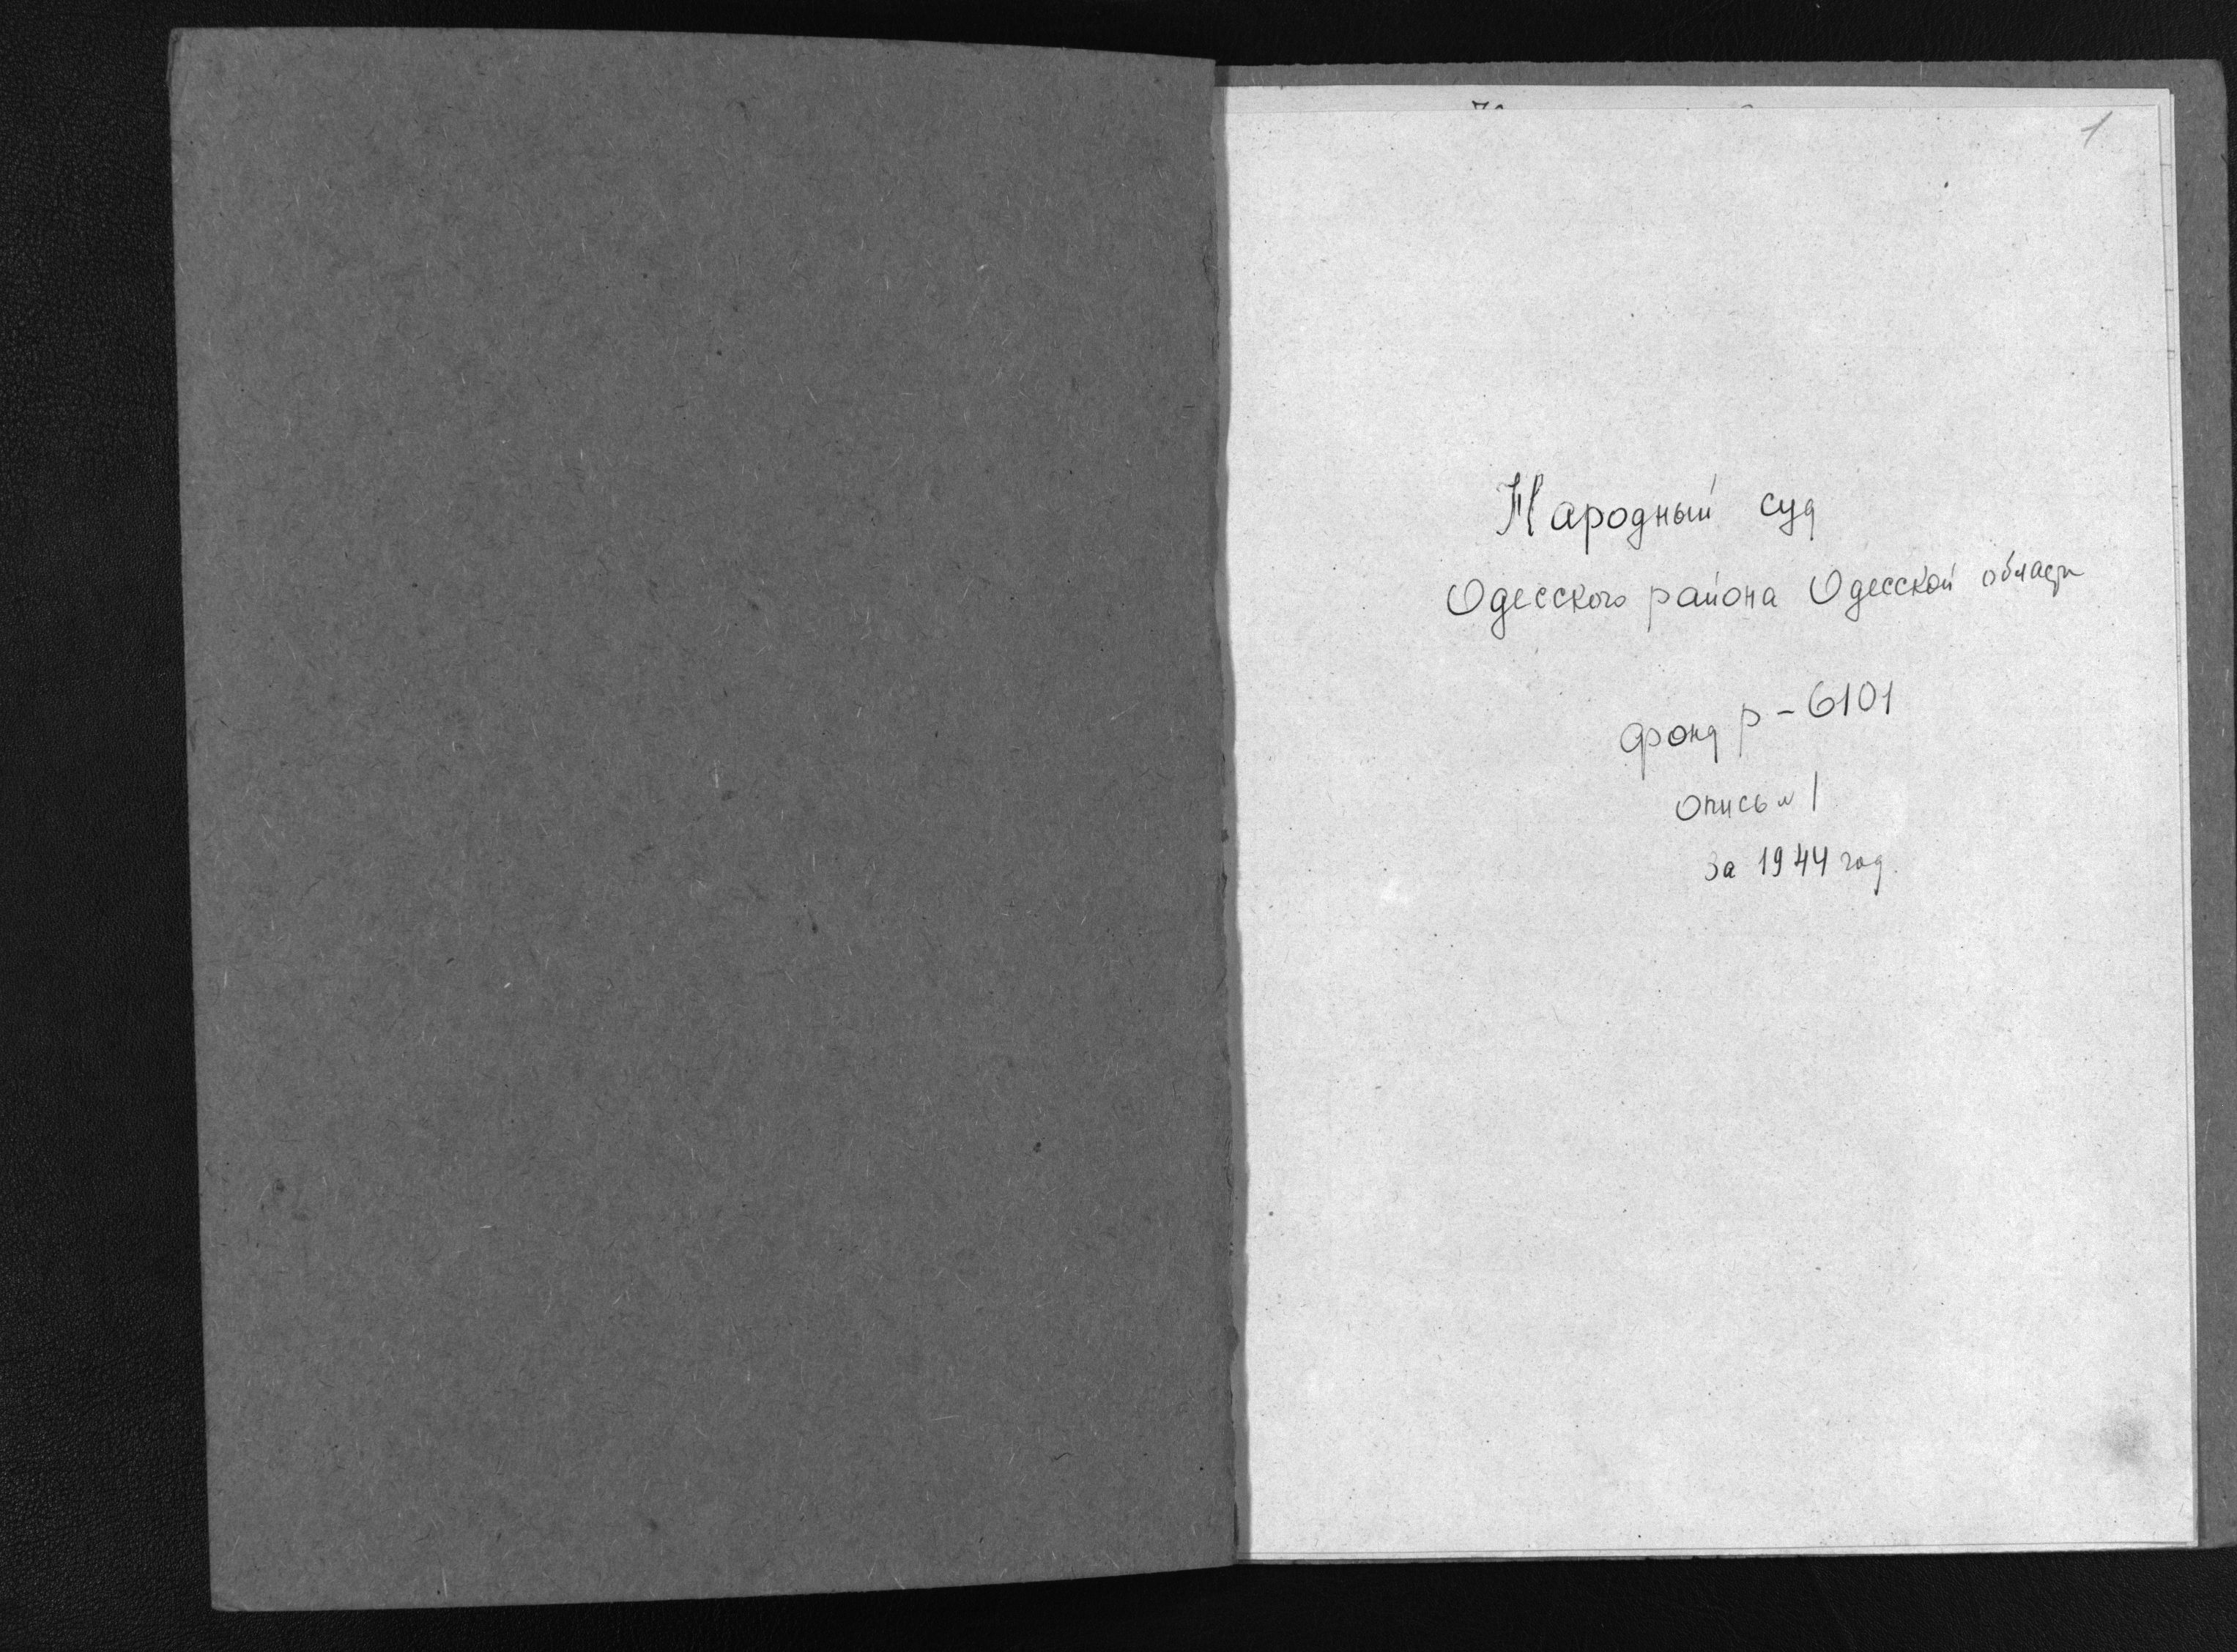 1
Народный суд
Одесского района Одесской области
Фонд р-6101
Опись № 1
за 1944 год.